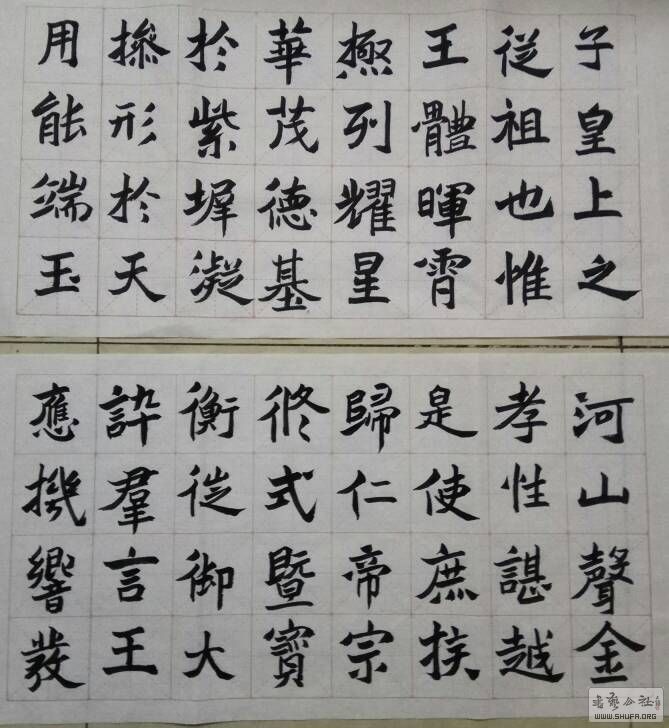 子皇上之
從祖也惟
王體暉霄
極列耀星
華茂德基
於紫墀凝
操形於天
用能端玉
河山聲金
孝性諶越
是使庶族
歸仁帝宗
攸式暨寳
衡徙御大
訟羣言王
應機響發
WWW.SHUFA.ORG